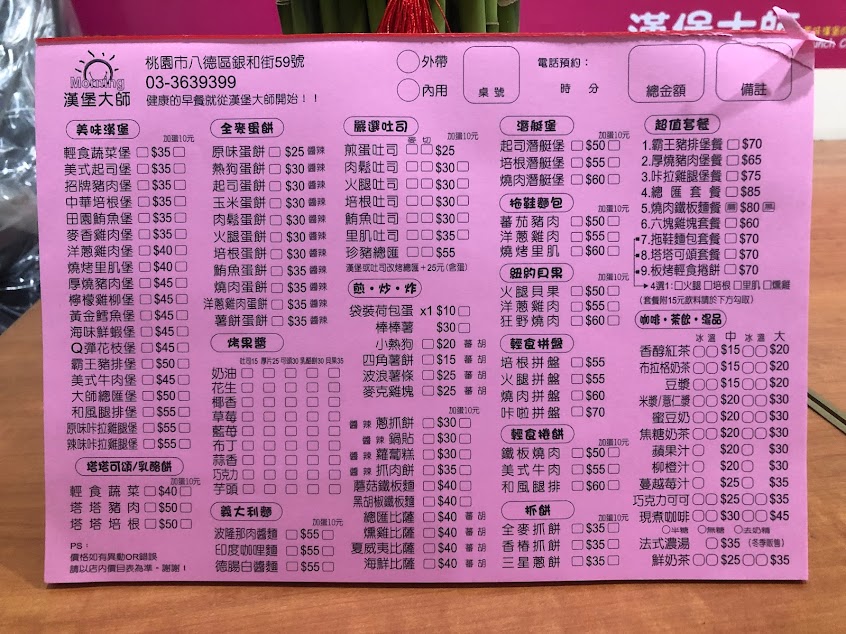 漢堡大師
Morning
漢堡大師
桃園市八德區銀和街59號
03-3639399
健康的早餐就從漢堡大師開始！！
○外帶
○內用
桌號
電話預約：
時 分
總金額
備註
美味漢堡
加蛋10元
輕食蔬菜堡 □$35□
美式起司堡 □$35□
招牌豬肉堡 □$35□
中華培根堡 □$35□
田園鮪魚堡 □$35□
麥香雞肉堡 □$35□
洋蔥雞肉堡 □$40□
燒烤里肌堡 □$40□
厚燒豬肉堡 □$45□
檸檬雞柳堡 □$45□
黃金鱈魚堡 □$45□
海味鮮蝦堡 □$45□
Q彈花枝堡 □$45□
霸王豬排堡 □$50□
美式牛肉堡 □$45□
大師總匯堡 □$50□
和風腿排堡 □$55□
原味咔拉雞腿堡 □$55□
辣味咔拉雞腿堡 □$55□
塔塔可頌/乳酪餅
加蛋10元
輕食蔬菜 □$40□
塔塔豬肉 □$50□
塔塔培根 □$50□
PS：
價格如有異動OR錯誤
請以店內價目表為準。謝謝！
全麥蛋餅
加蛋10元
原味蛋餅 □$25 醬辣
熱狗蛋餅 □$30 醬辣
起司蛋餅 □$30 醬辣
玉米蛋餅 □$30 醬辣
肉鬆蛋餅 □$30 醬辣
火腿蛋餅 □$30 醬辣
培根蛋餅 □$30 醬辣
鮪魚蛋餅 □$35 醬辣
燒肉蛋餅 □$35 醬辣
洋蔥雞肉蛋餅 □$35 醬辣
薯餅蛋餅 □$35 醬辣
烤果醬
吐司15 厚片25 可頌30 乳酪餅30 貝果35
奶油 □ □ □ □ □
花生 □ □ □ □ □
椰香 □ □ □ □ □
草莓 □ □ □ □ □
藍莓 □ □ □ □ □
布丁 □ □ □ □ □
蒜香 □ □ □ □ □
巧克力 □ □ □ □ □
芋頭 □ □ □ □ □
義大利麵
加蛋10元
波隆那肉醬麵 □$55□
印度咖哩麵 □$55□
德腸白醬麵 □$55□
嚴選吐司
加蛋10元
煎蛋吐司 □□$25
肉鬆吐司 □□$30□
火腿吐司 □□$30□
培根吐司 □□$30□
鮪魚吐司 □□$30□
里肌吐司 □□$35□
珍豬總匯 □□$55
漢堡或吐司改烤總匯＋25元(含蛋)
煎・炒・炸
袋裝荷包蛋 x1 $10□
棒棒薯 $30□
小熱狗 □$20 蕃 胡
四角薯餅 □$15 蕃 胡
波浪薯條 □$25 蕃 胡
麥克雞塊 □$25 蕃 胡
加蛋10元
醬 辣 蔥抓餅 □$30□
醬 辣 鍋貼 □$30□
醬 辣 蘿蔔糕 □$30□
醬 辣 抓肉餅 □$35□
蘑菇鐵板麵 □$40□
黑胡椒鐵板麵 □$40□
總匯比薩 □$40 蕃 胡
燻雞比薩 □$40 蕃 胡
夏威夷比薩 □$40 蕃 胡
海鮮比薩 □$40 蕃 胡
潛艇堡
加蛋10元
起司潛艇堡 □$50□
培根潛艇堡 □$55□
燒肉潛艇堡 □$60□
拖鞋麵包
加蛋10元
蕃茄豬肉 □$50□
洋蔥雞肉 □$55□
燒烤里肌 □$60□
紐約貝果
加蛋10元
火腿貝果 □$50□
洋蔥雞肉 □$55□
狂野燒肉 □$60□
輕食拼盤
培根拼盤 □$55
火腿拼盤 □$55
燒肉拼盤 □$60
咔啦拼盤 □$70
輕食捲餅
加蛋10元
鐵板燒肉 □$50□
美式牛肉 □$55□
和風腿排 □$60□
抓餅
加蛋10元
全麥抓餅 □$35□
香椿抓餅 □$35□
三星蔥餅 □$35□
超值套餐
1.霸王豬排堡餐 □$70
2.厚燒豬肉堡餐 □$65
3.咔拉雞腿堡餐 □$75
4.總匯套餐 □$85
5.燒肉鐵板麵餐 $80
6.六塊雞塊套餐 □$60
7.拖鞋麵包套餐 □$70
8.塔塔可頌套餐 □$70
9.板烤輕食捲餅 □$70
4選1:□火腿□培根□里肌□燻雞
(套餐附15元飲料請於下方勾取)
咖啡・茶飲・湯品
冰 溫 中 冰 溫 大
香醇紅茶 ○○$15○○$20
布拉格奶茶 ○○$15○○$20
豆漿 ○○$15○○$20
米漿/薏仁漿 ○○$20○○$30
蜜豆奶 ○○$20○○$30
焦糖奶茶 ○○$20○○$30
蘋果汁 ○ $20 ○ $30
柳橙汁 ○ $20 ○ $30
蔓越莓汁 ○ $25 ○ $35
巧克力可可 ○○$25○○$35
現煮咖啡 ○○$30○○$45
○半糖 ○無糖 ○去奶精
法式濃湯 ○$35 (冬季販售)
鮮奶茶 ○○$25○○$35